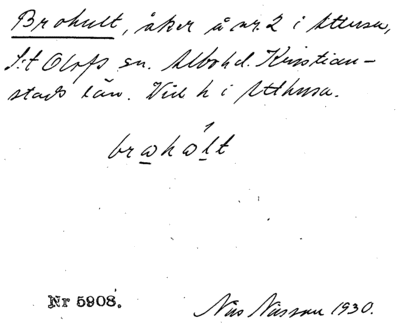 Brohult, åker å nr. 2 i Attusa,
S:t Olofs sn. Albo hd. Kristian-
stads län. Vid h i Atthusa.
brωhώlt
Nr 5908.
Nils Nilsson 1930.